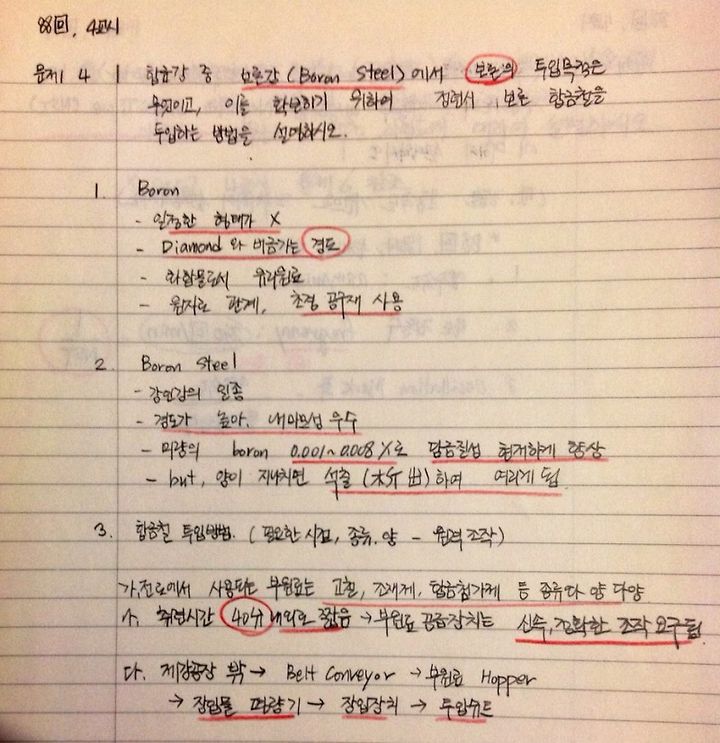 88回, 4교시
문제 4 합금강 중 보론강 (Boron Steel) 에서 보론의 투입목적은
무엇이고, 이를 확보하기 위하여 정련시 보론 합금철을
투입하는 방법을 설명하시오.
1. Boron
- 일정한 형태가 X
- Diamond 와 버금가는 경도
- 화합물로서 유리원료
- 원자로 관계, 초경 공구재 사용
2. Boron Steel
- 강인강의 일종
- 경도가 높아. 내마모성 우수
- 미량의 boron 0.001~0.008%로 담금질성 현저하게 향상
- but, 양이 지나치면 석출 (析出)하여 여리게 됨.
3. 합금철 투입방법. (필요한 시점, 종류, 양 - 원격 조작)
가. 전로에서 사용되는 부원료는 고철, 조재제, 합금첨가제 등 종류와 양 다양
나. 취련시간 40分 내외로 짧음 → 부원료 공급장치는 신속, 정확한 조작 요구됨.
다. 제강공장 밖 → Belt Conveyor → 부원료 Hopper
→ 장입물 평량기 → 장입장치 → 투입슈트